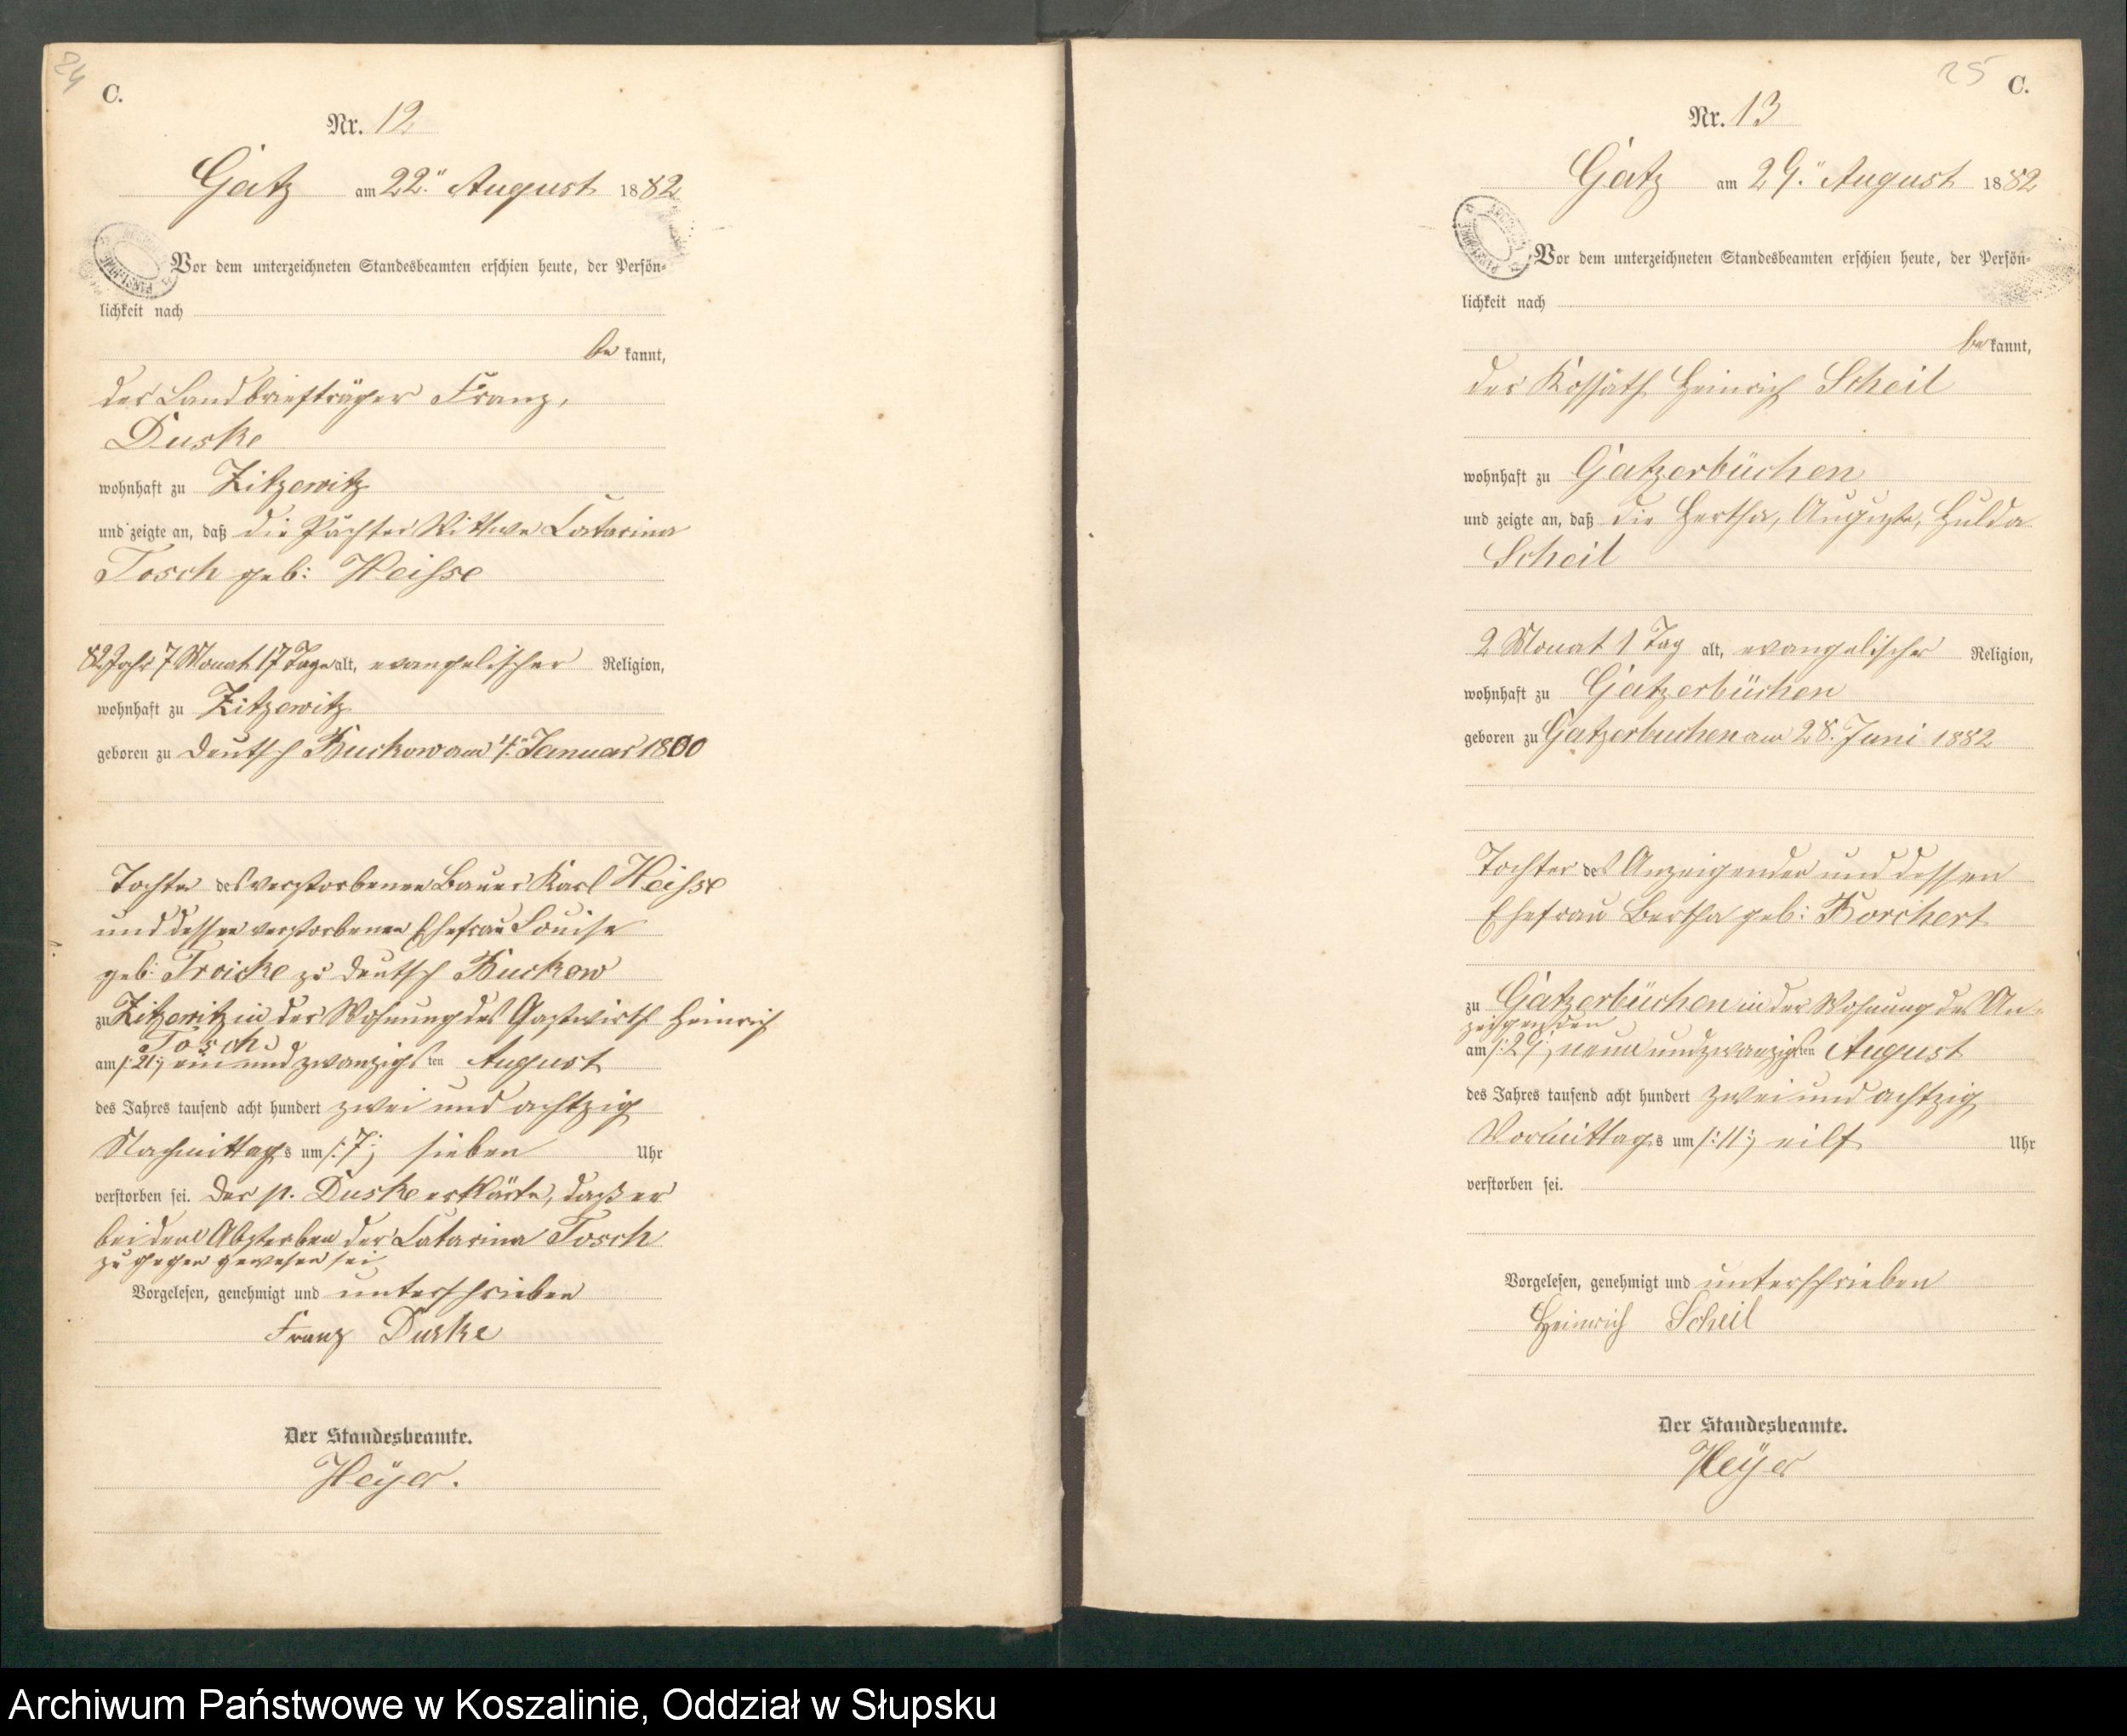 24
C.
Nr. 12
Gatz am 22.ⁿ August 1882
Vor dem unterzeichneten Standesbeamten erschien heute, der Persön-
lichkeit nach
be kannt,
der Landbriefträger Franz,
Duske
wohnhaft zu Zitzewitz
und zeigte an, daß die Pächter Wittwe Catarina
Tosch geb: Weisse
82 Jahr 7 Monat 17 Tage alt, evangelischer Religion,
wohnhaft zu Zitzewitz
geboren zu deutsch Buckow am 4. Januar 1800
Tochter des verstorbenen Bauer Karl Weisse
und dessen verstorbenen Ehefrau Louise
geb: Troicke zu deutsch Buckow
zu Zitzewitz in der Wohnung des Gastwirth Heinrich
Tosch
am /:21:/ ein und zwanzigsten August
des Jahres tausend acht hundert zwei und achtzig
Nachmittags um /:7:/ sieben Uhr
verstorben sei. Der p. Duske erklärte, daß er
bei dem Absterben der Catarina Tosch
zugegen gewesen sei
Vorgelesen, genehmigt und unterschrieben
Franz Duske
Der Standesbeamte.
Heÿer.
25
C.
Nr. 13
Gatz am 29.ⁿ August 1882
Vor dem unterzeichneten Standesbeamten erschien heute, der Persön-
lichkeit nach
be kannt,
der Kossäth Heinrich Scheil
wohnhaft zu Gatzerbüchen
und zeigte an, daß die Hertha, Auguste, Hulda
Scheil
2 Monat 1 Tag alt, evangelischer Religion,
wohnhaft zu Gatzerbüchen
geboren zu Gatzerbuchen am 28. Juni 1882
Tochter des Anzeigenden und dessen
Ehefrau Bertha geb: Borchert
zu Gatzerbüchen in der Wohnung des An-
zeigenden
am /:29:/ neun und zwanzigsten August
des Jahres tausend acht hundert zwei und achtzig
Vormittags um /:11:/ eilf Uhr
verstorben sei.
Vorgelesen, genehmigt und unterschrieben
Heinrich Scheil
Der Standesbeamte.
Heÿer
Archiwum Państwowe w Koszalinie, Oddział w Słupsku